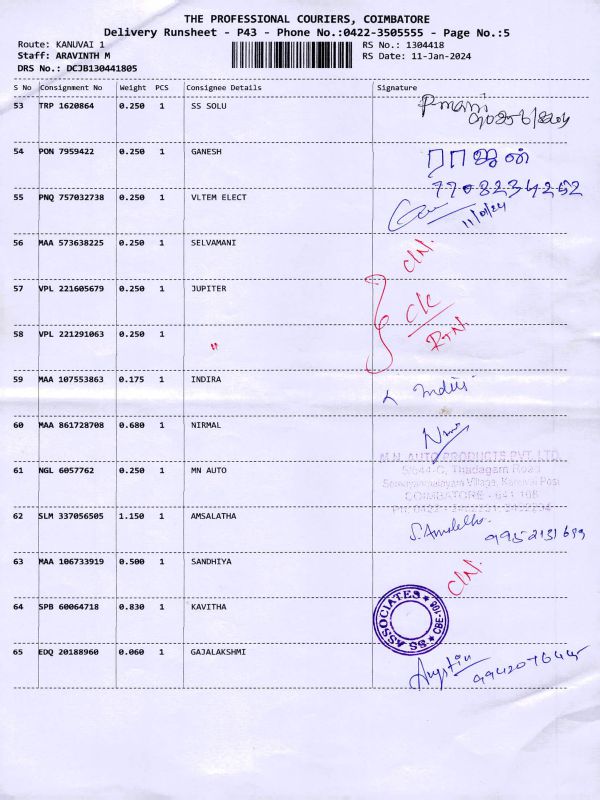 THE PROFESSIONAL COURIERS, COIMBATORE
Delivery Runsheet - P43 - Phone No.:0422-3505555 - Page No.:5
Route: KANUVAI 1
RS No.: 1304418
Staff: ARAVINTH M
RS Date: 11-Jan-2024
DRS No.: DCJB130441805
S No Consignment No Weight PCS Consignee Details Signature
53 TRP 1620864 0.250 1 SS SOLU
54 PON 7959422 0.250 1 GANESH ராஜன்
7708234252
55 PNQ 757032738 0.250 1 VLTEM ELECT
11/01/24
56 MAA 573638225 0.250 1 SELVAMANI C/N.
57 VPL 221605679 0.250 1 JUPITER C/C
58 VPL 221291063 0.250 1 " RTN.
59 MAA 107553863 0.175 1 INDIRA
60 MAA 861728708 0.680 1 NIRMAL
M.N. AUTO PRODUCTS PVT. LTD.
61 NGL 6057762 0.250 1 MN AUTO 5/644-C, Thadagam Road
Somayampalayam Village, Kanuvai Post
COIMBATORE - 641 108
62 SLM 337056505 1.150 1 AMSALATHA
63 MAA 106733919 0.500 1 SANDHIYA C/N.
64 SPB 60064718 0.830 1 KAVITHA SS ASSOCIATES * CBE-108 *
65 EDQ 20188960 0.060 1 GAJALAKSHMI